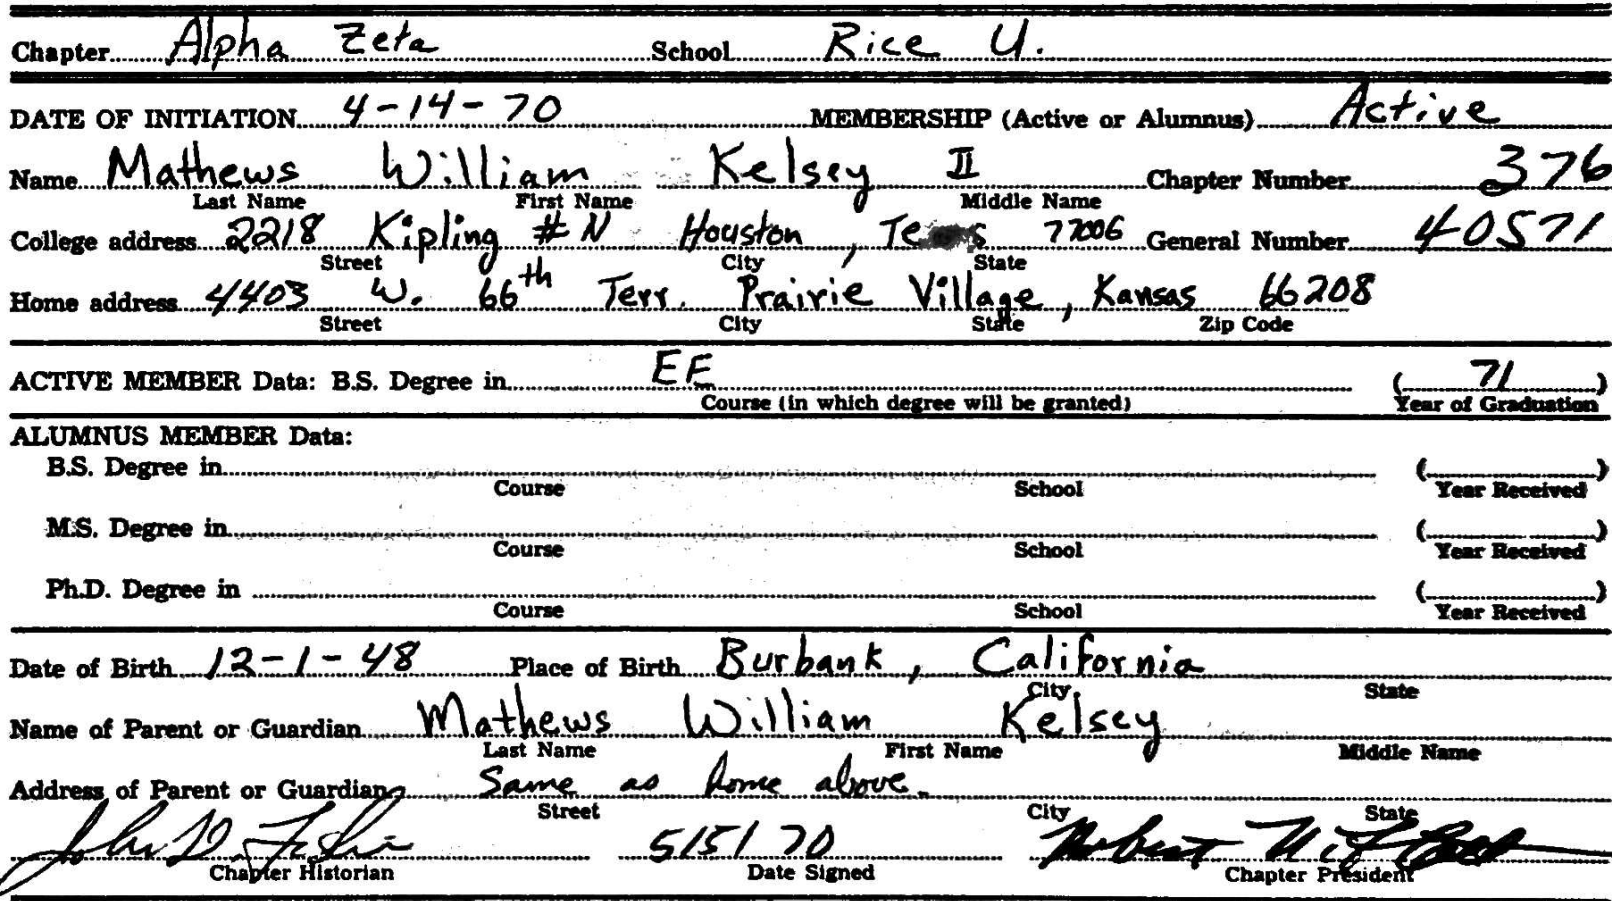 Chapter Alpha Zeta School Rice U.
DATE OF INITIATION 4-14-70 MEMBERSHIP (Active or Alumnus) Active
Name Mathews William Kelsey II Chapter Number 376
Last Name First Name Middle Name
College address 2218 Kipling #N Houston, 77006 General Number 40571
Street City State
Home address 4403 W. 66th Terr. Prairie Village, Kansas 66208
Street City State Zip Code
ACTIVE MEMBER Data: B.S. Degree in EE (71)
Course (in which degree will be granted) Year of Graduation
ALUMNUS MEMBER Data:
B.S. Degree in ( )
Course School Year Received
M.S. Degree in ( )
Course School Year Received
Ph.D. Degree in ( )
Course School Year Received
Date of Birth 12-1-48 Place of Birth Burbank, California
City State
Name of Parent or Guardian Mathews William Kelsey
Last Name First Name Middle Name
Address of Parent or Guardian Same as home above.
Street City State
John D. 5/5/70 Robert
Chapter Historian Date Signed Chapter President